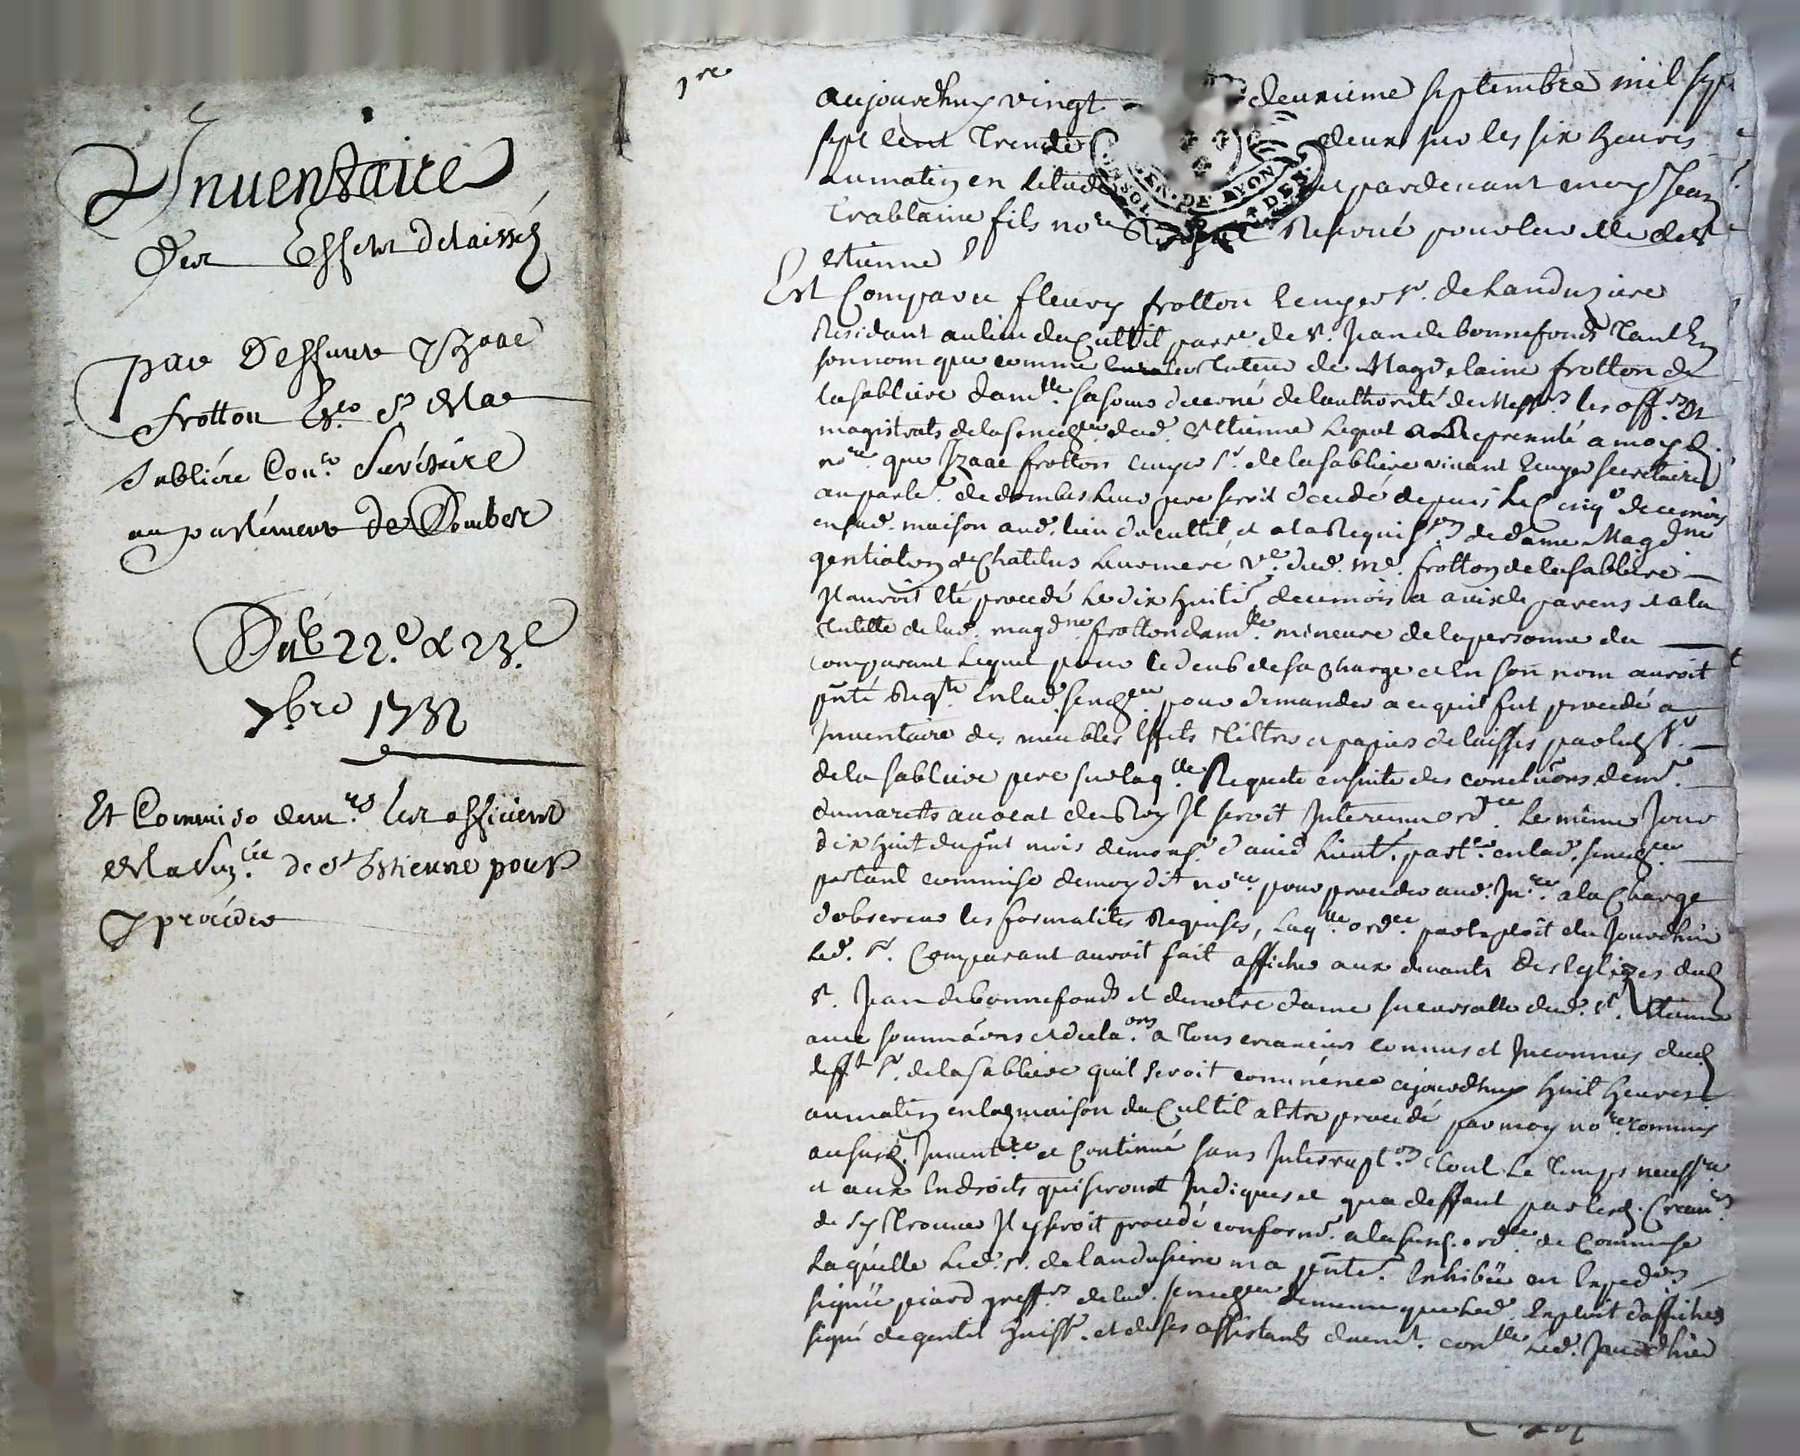 Inventaire
Des Effets delaissés
par Deffunt Yzaac
frotton Esc.r Sr de la
Sabliére Con.er Secrétaire
au parlement de Dombes
Du 22.e & 23.e
7bre 1732
Et Commis.on de m.rs les officiers
de la Sen.cée de St Estienne pour
y procéder
1re
aujourdhuy vingt deuxieme septembre mil sept
sept cent Trente deux sur les six heures
du matin en letude et pardevant moy Jean
Trablaine fils no.re Royal Reservé pour la ville de St
estienne
Est Comparu fleury frotton Ecuyer Sr. de Landuziere
Residant au lieu du Cultil parr.e de St. Jean de bonnefonds Tant En
son nom que comme Tuteur de Magdelaine frotton de
la sabliere dam.lle sa soeur decerné de lauthorité de Mess.rs les off.rs et
magistrats de la senech.ée dud. St Etienne Lequel a Representé a moy d.
no.re que Izaac frotton Ecuyer Sr. de la sabliere vivant Ecuyer secretaire
au parle.t de dombes leur pere seroit decedé depuis Le Cinq.e de ce mois
en sad. maison aud. lieu du cultil et a la Requis.on de dame Magd.ne
gentialon de Chatelus leur mere v.e dud. m.e frotton de la sabliere
Il auroit été procedé Le dix huiti.e de ce mois a avis de parens et a la
tutelle de lad. magd.ne frotton dam.lle mineure de la personne du
comparant Lequel pour le deub de sa Charge et En son nom auroit
pñté Req.te En lad. senech.ée pour demander a ce quil fut procedé a
Inventaire des meubles Effets tiltres et papiers delaisses par led. Sr.
de la sabliere pere sur laq.lle Requete ensuite des conclu͠ons de m.r
dumarets avocat du Roy Il seroit Intervenu ord.ce Le même Jour
dix huit du pñt mois de mons.r david Lieut.t part.er en lad. senech.ée
portant commiss.on de moydit no.re pour proceder aud. In.re a la Charge
dobserver les formalités Requises, Laq.lle ord.ce par Exploit du Jourdhier
Led. Sr. Comparant auroit fait afficher aux devants des Eglizes dud.
St. Jean de bonnefonds et de notre dame sucursalle dud. St. Etienne
avec somma͠ons et decla.ons a Tous creanciers connus et Inconnus dud.
deff.t Sr. de la sabliere quil seroit commencé cejourdhuy huit heures
du matin en lad. maison du Cultil a Etre procedé par moy no.re commis
au susd. Invent.re et Continué sans Interrupt.on Tout Le Temps necess.re
et aux Endroits qui seront Indiqués et qua deffaut par lesd. Crean.rs
de sy trouver Il y seroit procedé conform.t a la susd. ord.ce de Commise
Laquelle Led. Sr. de landusiere ma pñté. Exhibée en Exped.on
signée piard greff.er de lad. senech.ée de meme que Led. Exploit daffiches
signé degentil huiss.r et de ses assistants duem.t con.llé Led. Jourdhier